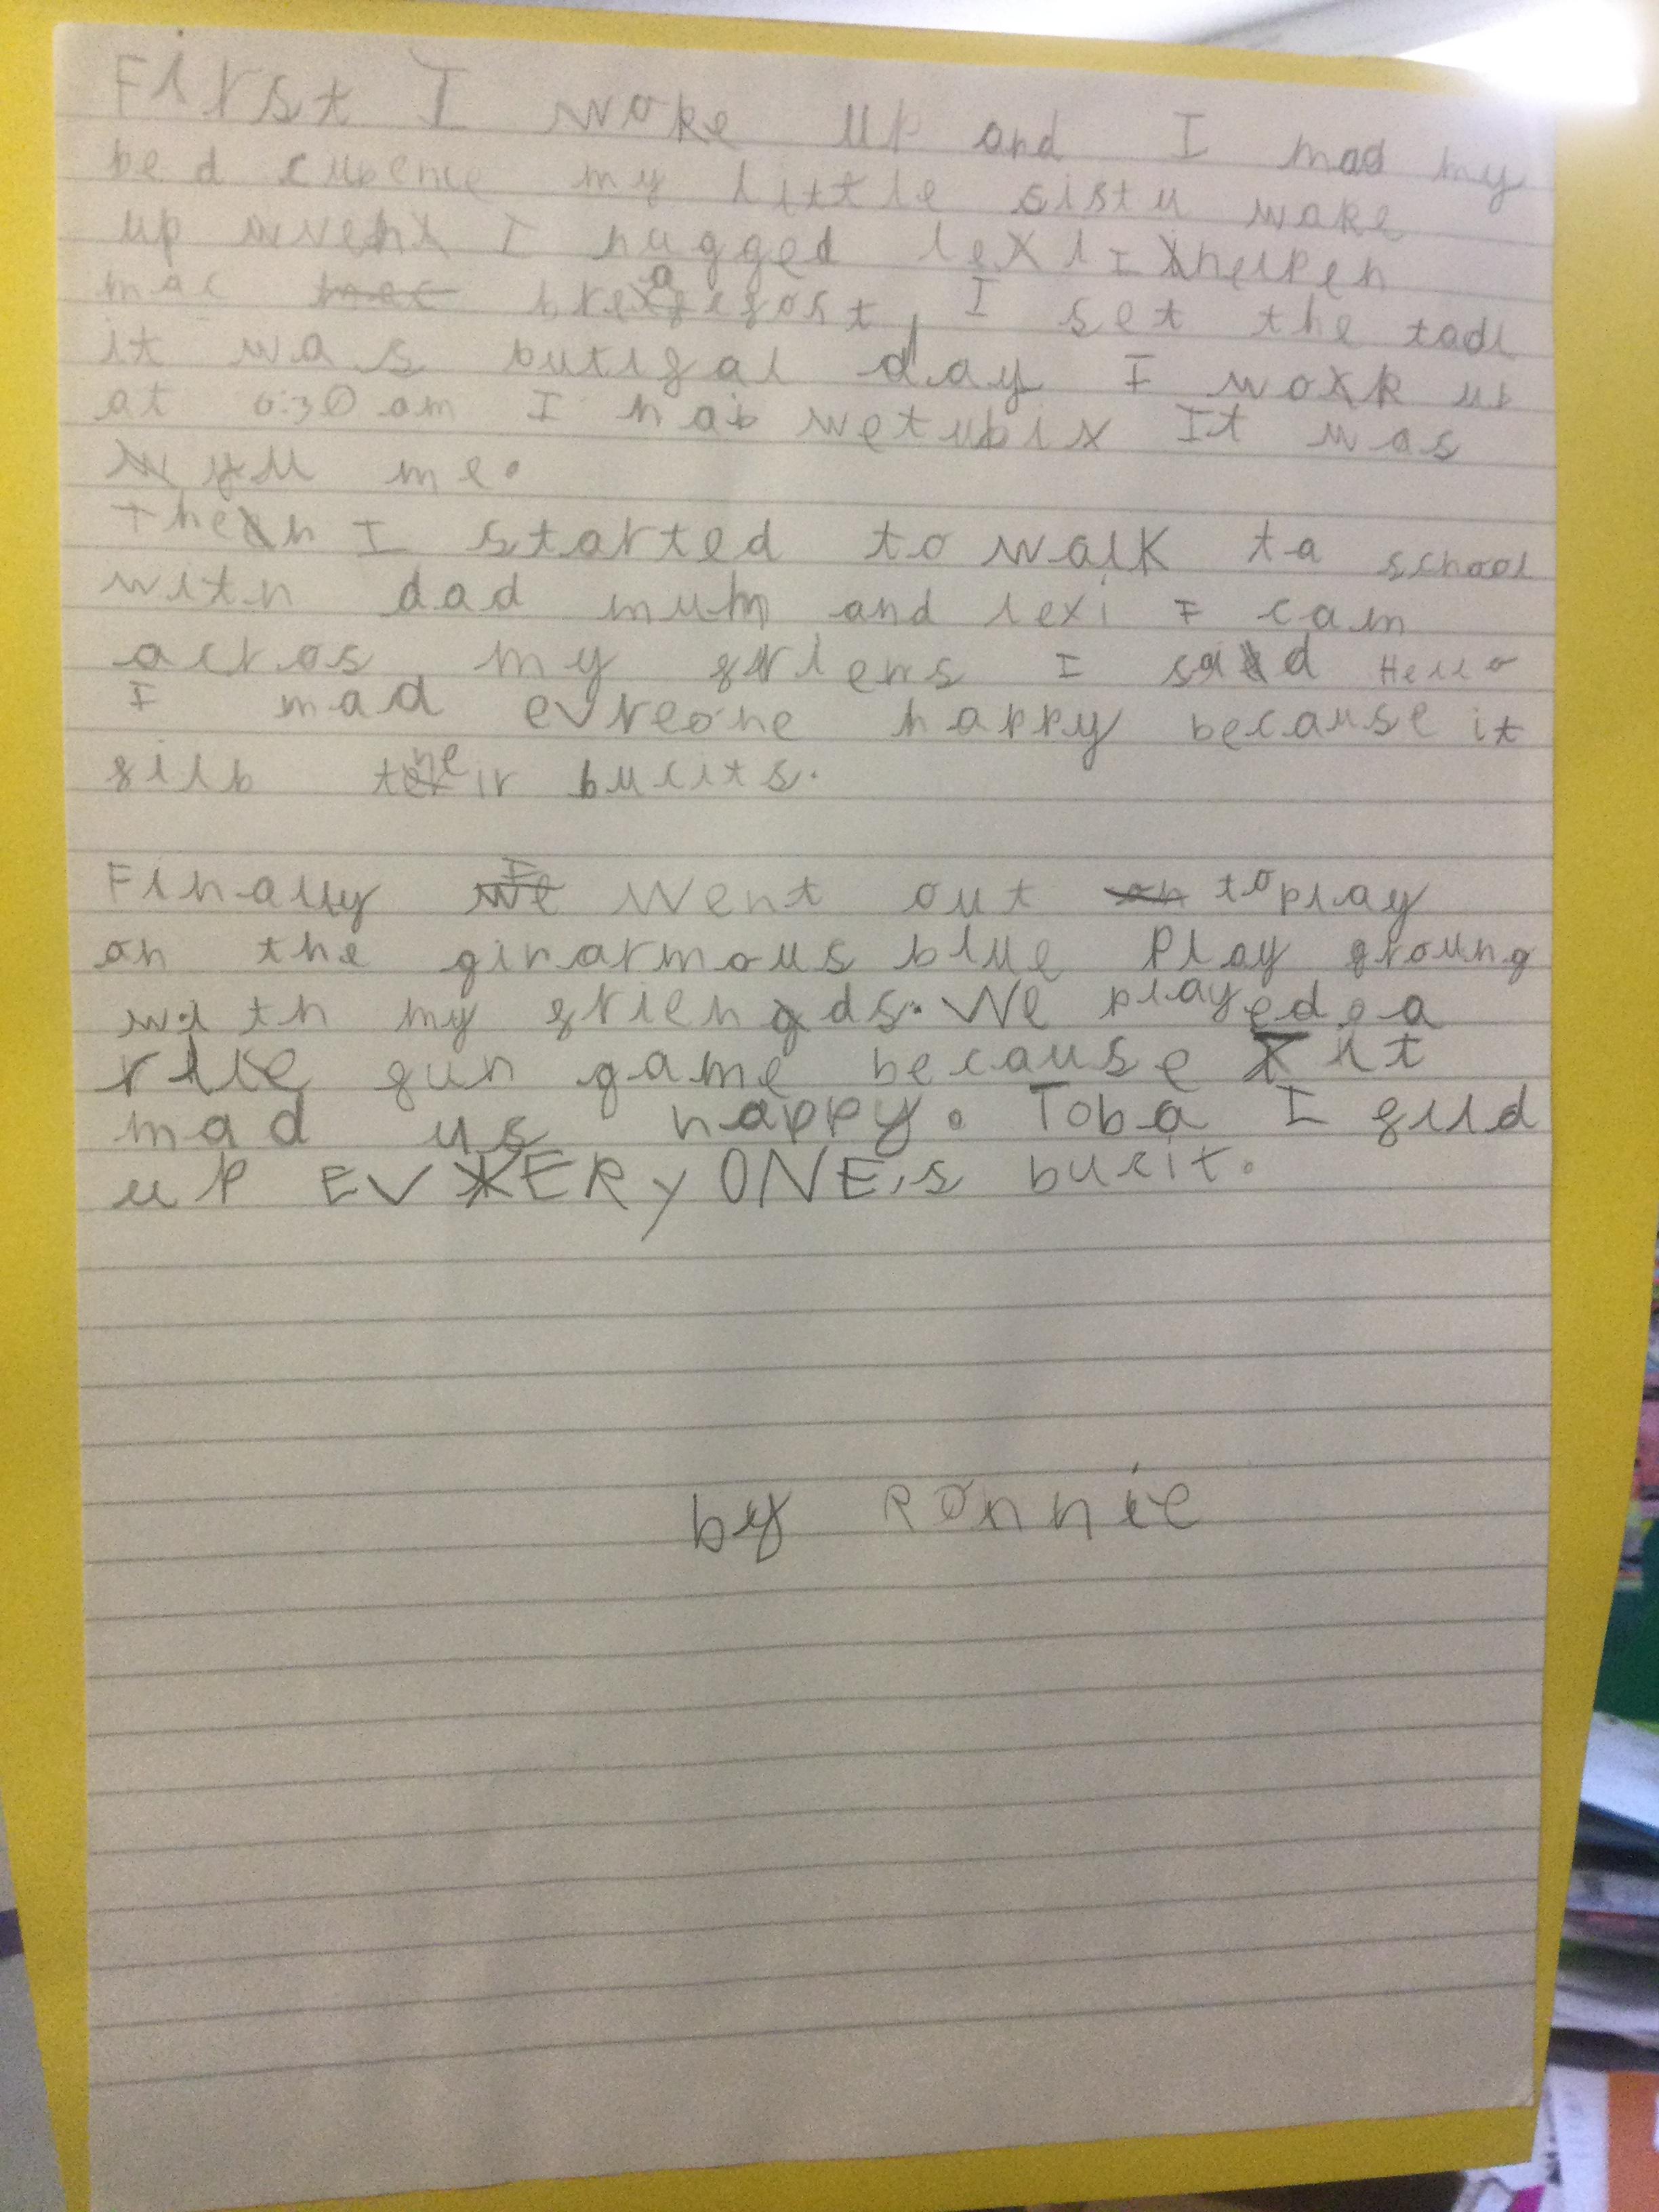 First I woke up and I mad my
bed my little sistu wake
up I hugged lexi I helpen
mac breafost, I set the tadl
it was butifal day I work up
at 6:30 am I hab wetubix It was
yu me.
Then I started to walk to school
with dad mum and lexi I cam
acros my friens I said Hello
I mad evreone happy because it
filb their bucits.
Finally I went out to play
on the ginarmous blue Play groung
with my friends. We played a
rille fun game because it
mad us happy. Toba I fild
up EVERyONE's bucit.
by Ronnie